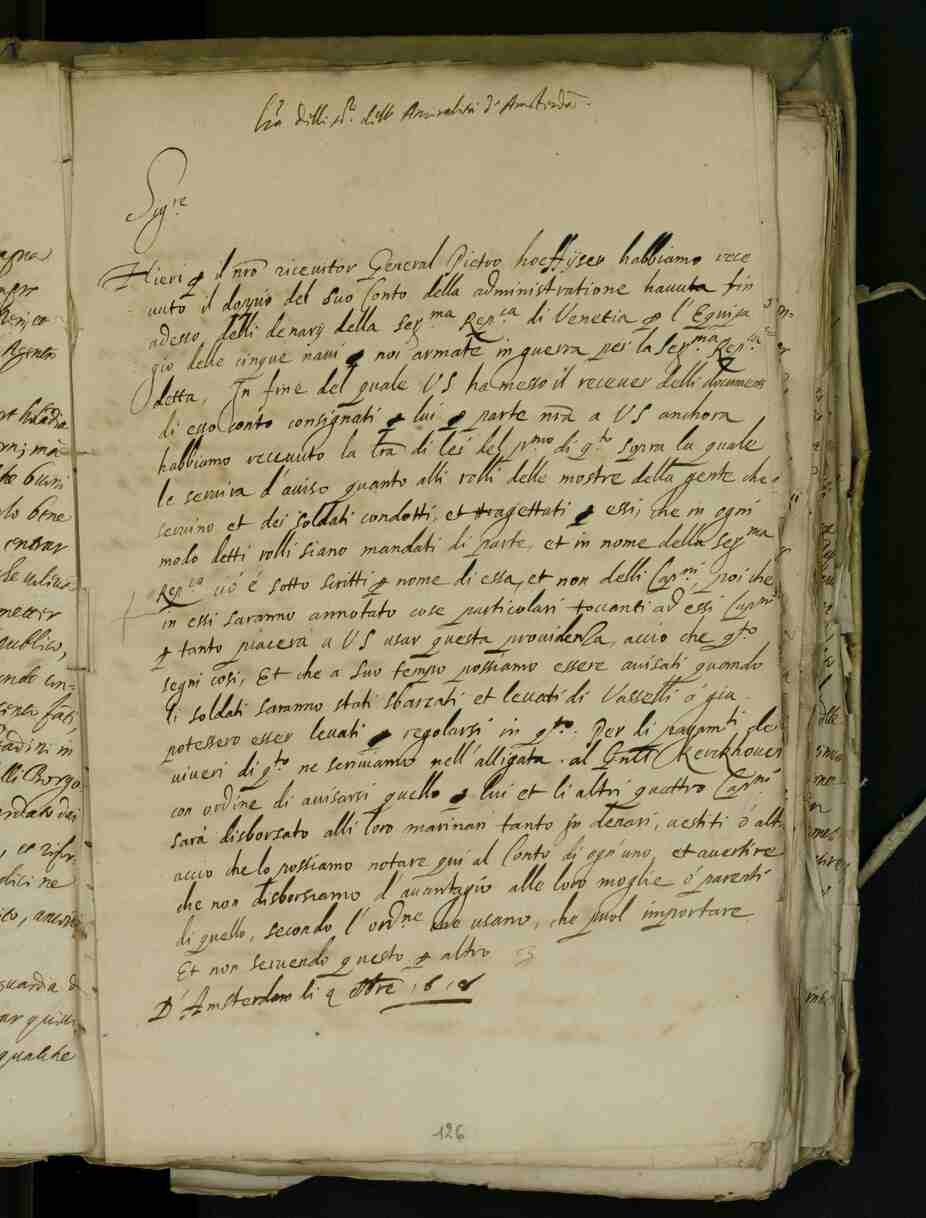 Lra delli SSri dell Amiralità d'Amsterda.
Sigre
Hieri p il nro ricevitor General Pietro hoeffijser habbiamo rece
vuto il doppio del suo Conto della administratione havuta fin
adesso delli denarij della Serma Repca di Venetia p l'Equipa
gio delle cinque navi p noi armate in guerra per la Serma Repca
detta, In fine del quale VS ha messo il recever delli document
di esso conto consignati p lui p parte nra a VS anchora
habbiamo recevuto la lra di lei del pmo di qto sopra la quale
le servira d'aviso quanto alli rolli delle mostre della gente che
servino et dei soldati condotti, et tragettati p essi, che in ogni
modo detti rolli siano mandati di parte, et in nome della Serma
Repca ciò è sotto scritti p nome di essa, et non delli Capni, poi che
in essi saranno annotato cose particolari toccanti ad essi Capni
p tanto piacerà a VS usar questa providenza, acciò che qto
segni così, Et che a suo tempo possiamo essere avisati quando
li soldati saranno stati sbarcati et levati di Vasselli ó piu
potessero esser levati p regolarsi in qto. Per li pagamti de
viveri di qto ne scriviamo nell'alligata al Kerckhoven
con ordine di avisarsi quello p lui et li altri quattro Capni
sarà disborsato alli loro marinari tanto in denari, vestiti ó alt
accio che lo possiamo notare qui al Conto di ogn'uno, et avertire
che non disborsiamo d'avantagio alle loro moglie ó parenti
di quello, secondo l'ordne che usamo, che puol importare
Et non servendo questo p altro
D'Amsterdam li 9 8bre 1618
126